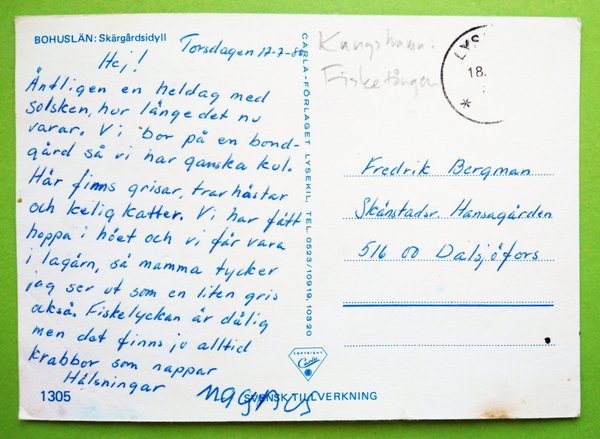 BOHUSLÄN: Skärgårdsidyll
Torsdagen 17-7-86
Hej!
Äntligen en heldag med
solsken, hur länge det nu
varar. Vi bor på en bond-
gård så vi har ganska kul.
Här finns grisar, travhästar
och kelig katter. Vi har fått
hoppa i höet och vi får vara
i lagårn, så mamma tycker
jag ser ut som en liten gris
också. Fiskelyckan är dålig
men det finns ju alltid
krabbor som nappar
Hälsningar
Magnus
1305
SVENSK TILLVERKNING
CARLA-FÖRLAGET LYSEKIL, TEL. 0523/10919, 10320
COPYRIGHT
Carla
Kungshamn:
Fisketången
LYS
18.
Fredrik Bergman
Skånstadsv. Hansagården
516 00 Dalsjöfors